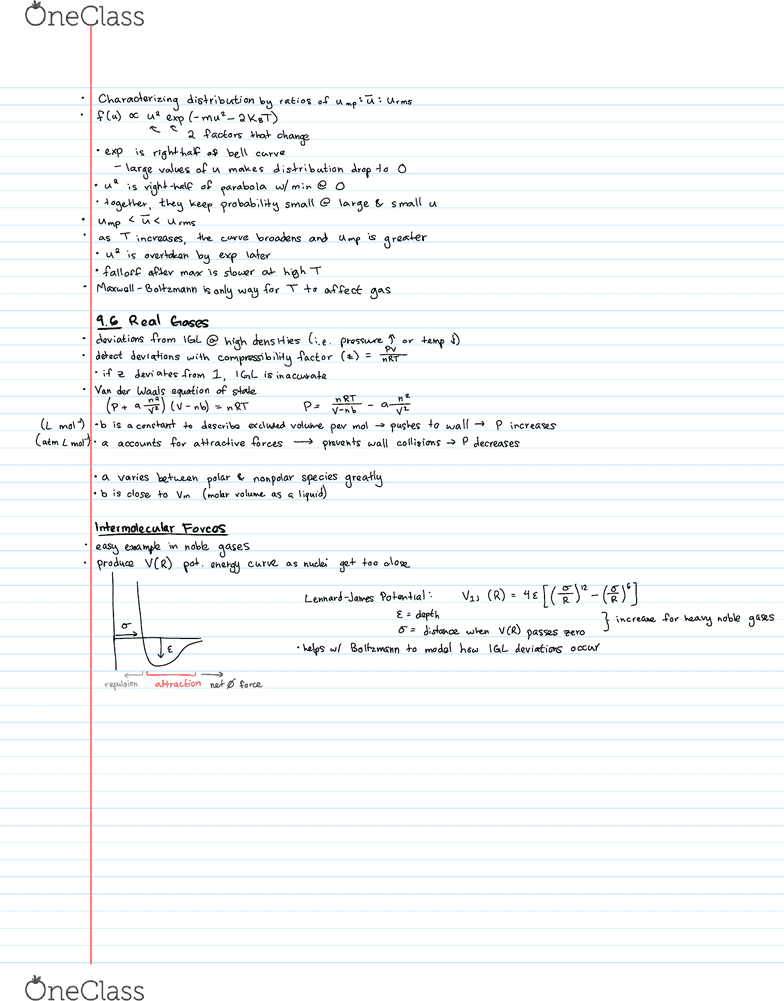 OneClass
· Characterizing distribution by ratios of u_mp : ū : u_rms
· f(u) ∝ u² exp (-mu² - 2K_BT)
2 factors that change
· exp is right half of bell curve
- large values of u makes distribution drop to 0
· u² is right-half of parabola w/ min @ 0
· together, they keep probability small @ large & small u
· u_mp < ū < u_rms
· as T increases, the curve broadens and u_mp is greater
· u² is overtaken by exp later
· falloff after max is slower at high T
· Maxwell-Boltzmann is only way for T to affect gas
9.6 Real Gases
· deviations from IGL @ high densities (i.e. pressure ↑ or temp ↓)
· detect deviations with compressibility factor (z) = PV/nRT
· if z deviates from 1, IGL is inaccurate
· Van der Waals equation of state
(P + a n²/V²) (V - nb) = nRT P = nRT/V-nb - a n²/V²
(L mol⁻¹) · b is a constant to describe excluded volume per mol → pushes to wall → P increases
(atm L mol⁻¹) · a accounts for attractive forces → prevents wall collisions → P decreases
· a varies between polar & nonpolar species greatly
· b is close to Vm (molar volume as a liquid)
Intermolecular Forces
· easy example in noble gases
· produce V(R) pot. energy curve as nuclei get too close
Lennard-James Potential: V_LJ (R) = 4ε [(σ/R)¹² - (σ/R)⁶]
ε = depth
σ = distance when V(R) passes zero } increase for heavy noble gases
· helps w/ Boltzmann to model how IGL deviations occur
σ
ε
repulsion attraction net Ø force
OneClass